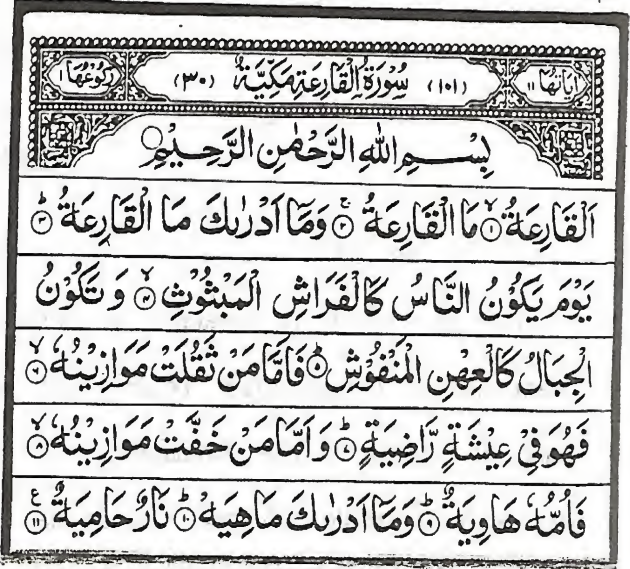 اٰيَاتُهَا ١١ (١٠١) سُوْرَةُ الْقَارِعَةِ مَكِّيَّةٌ (٣٠) رُكُوْعُهَا ١
بِسْمِ اللّٰهِ الرَّحْمٰنِ الرَّحِيْمِ
اَلْقَارِعَةُ ۙ﴿١﴾ مَا الْقَارِعَةُ ۚ﴿٢﴾ وَمَاۤ اَدْرٰىكَ مَا الْقَارِعَةُ ؕ﴿٣﴾
يَوْمَ يَكُوْنُ النَّاسُ كَالْفَرَاشِ الْمَبْثُوْثِ ۙ﴿٤﴾ وَ تَكُوْنُ
الْجِبَالُ كَالْعِهْنِ الْمَنْفُوْشِ ؕ﴿٥﴾ فَاَمَّا مَنْ ثَقُلَتْ مَوَازِيْنُهٗ ۙ﴿٦﴾
فَهُوَ فِيْ عِيْشَةٍ رَّاضِيَةٍ ؕ﴿٧﴾ وَ اَمَّا مَنْ خَفَّتْ مَوَازِيْنُهٗ ۙ﴿٨﴾
فَاُمُّهٗ هَاوِيَةٌ ؕ﴿٩﴾ وَمَاۤ اَدْرٰىكَ مَا هِيَهْ ؕ﴿١٠﴾ نَارٌ حَامِيَةٌ ﴿١١﴾ ع